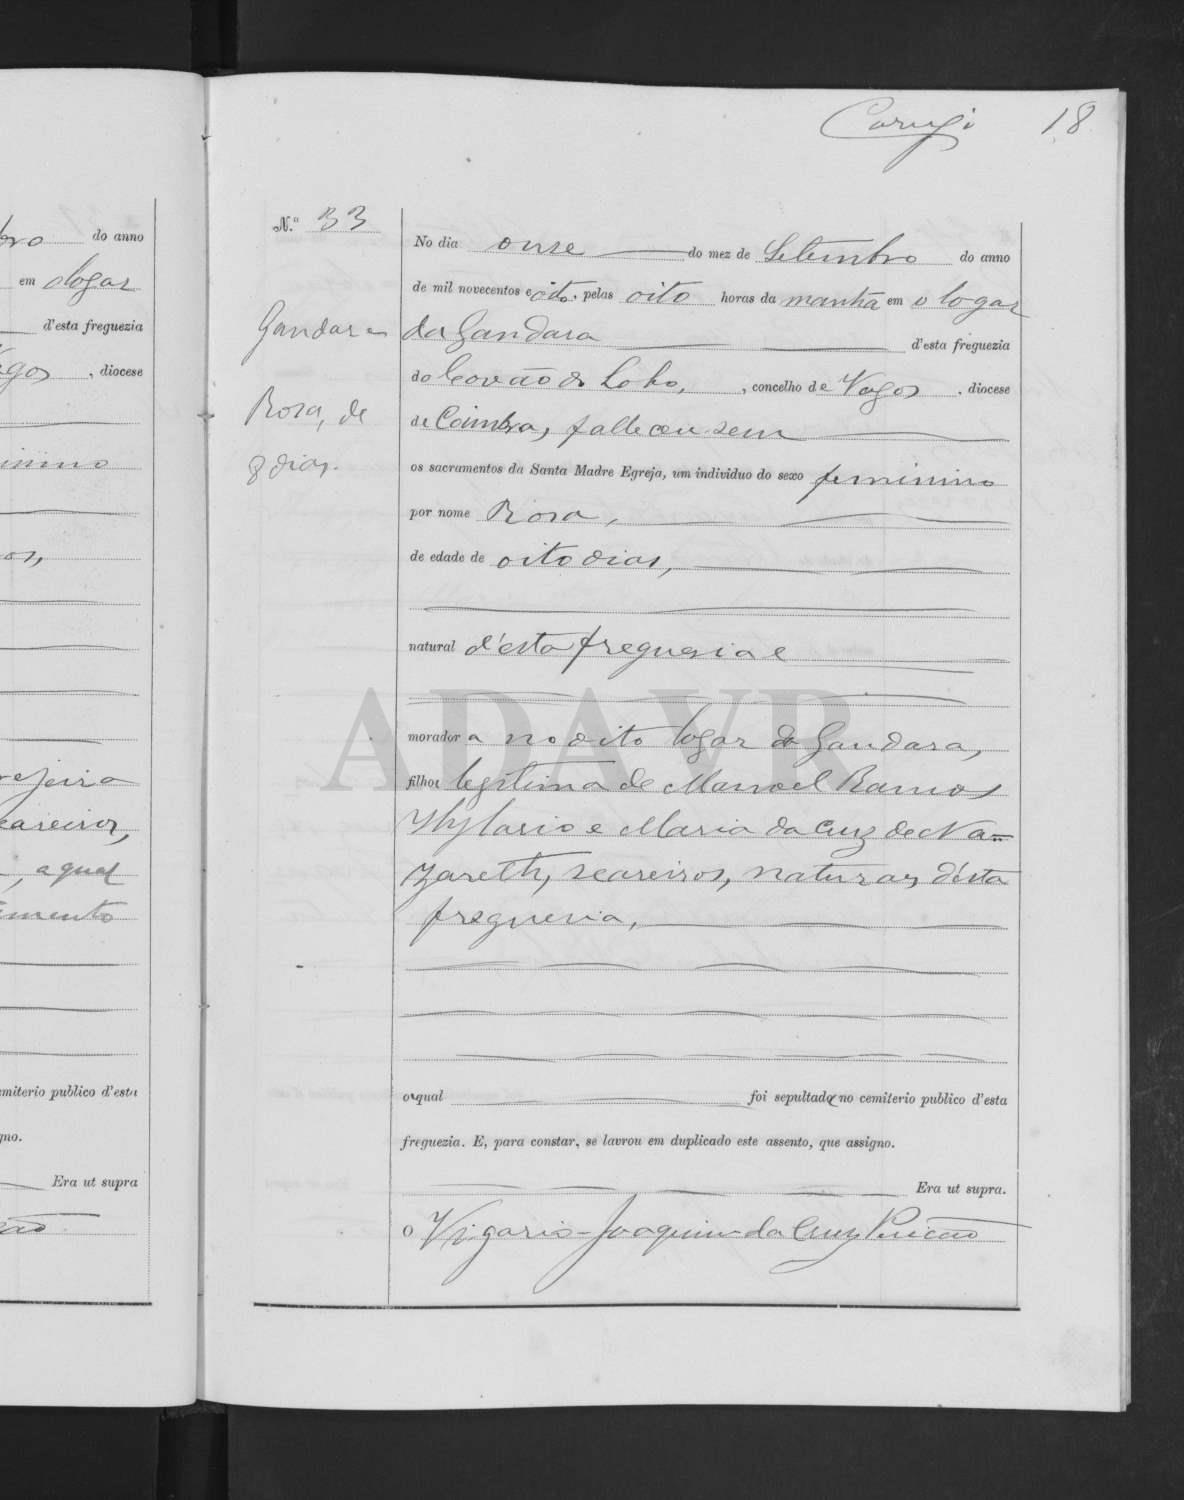 bro do anno
em o logar
d'esta freguezia
Vagos , diocese
inino
os,
rejeira
eareiros,
, a qual
imento
emiterio publico d'esta
gno.
Era ut supra
18
N.º 33
Gandara
Rosa, de
8 dias.
No dia onse do mez de Setembro do anno
de mil novecentos e oito, pelas oito horas da manhã em o logar
da Gandara d'esta freguezia
do Covão do Lobo, , concelho de Vagos , diocese
de Coimbra, falleceu sem
os sacramentos da Santa Madre Egreja, um individuo do sexo feminino
por nome Rosa,
de edade de oito dias,
natural d'esta freguesia e
moradora no dito logar da Gandara,
filha legitima de Manoel Ramos
Hylario e Maria da Cruz de Na=
zareth, seareiros, naturaes d'esta
freguesia,
ADAVR
a qual foi sepultada no cemiterio publico d'esta
freguezia. E, para constar, se lavrou em duplicado este assento, que assigno.
Era ut supra.
O Vigario - Joaquim da Cruz